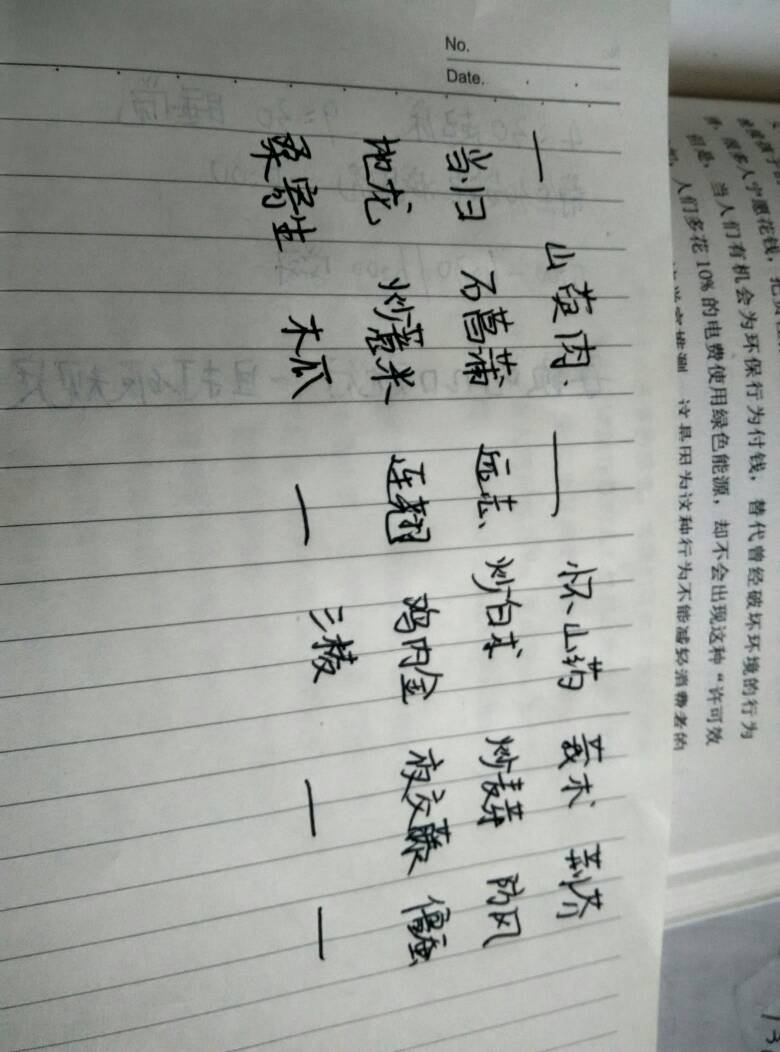 No.
Date.
— 山萸肉. — 怀山药 莪术 荆芥
当归 石菖蒲 远志 炒白术 炒麦芽 防风
地龙 炒薏米 连翘 鸡内金 夜交藤 僵蚕
桑寄生 木瓜 — 三棱 — —
很多人宁愿花钱，
但是，当人们有机会为环保行为付钱，替代曾经破坏环境的行为
人们多花10%的电费使用绿色能源，却不会出现这种“许可效
这是因为这种行为不能减轻消费者的